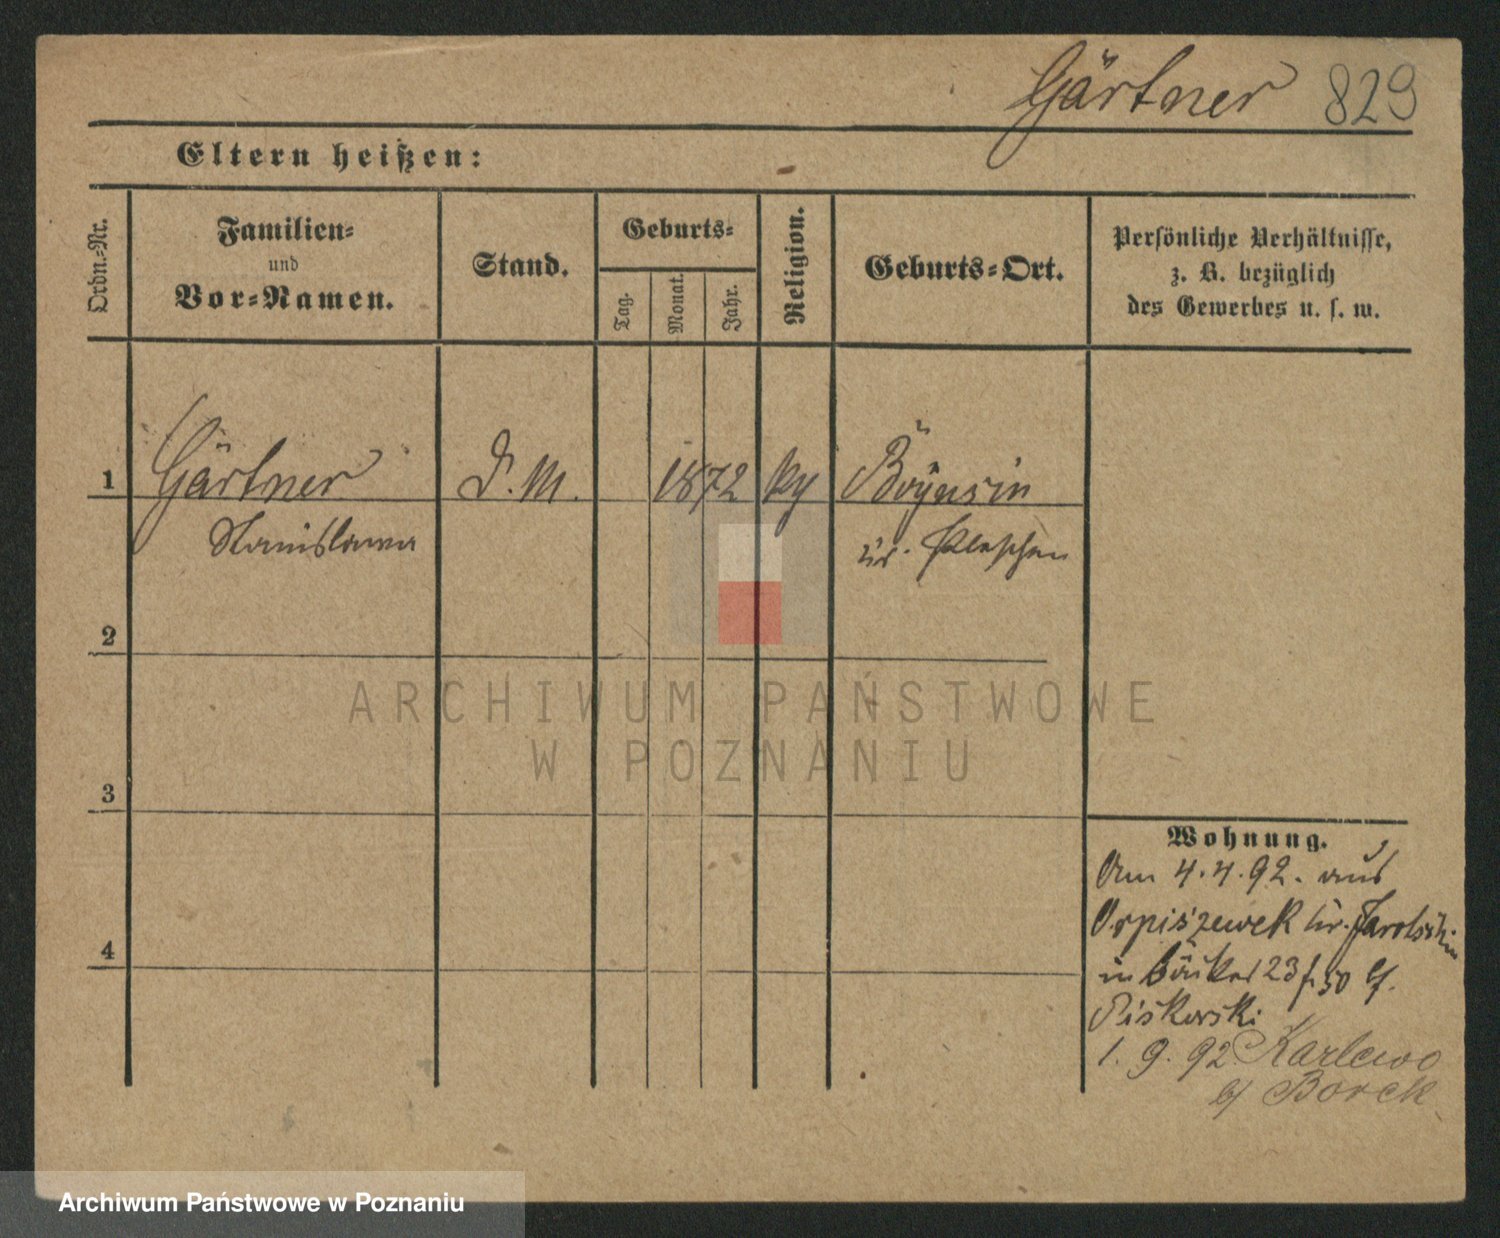 Gärtner 829
Eltern heißen:
Ordn.-Nr.
Familien-
und
Vor-Namen.
Stand.
Geburts-
Tag.
Monat.
Jahr.
Religion.
Geburts-Ort.
Persönliche Verhältnisse,
z. B. bezüglich
des Gewerbes u. s. w.
1 Gärtner D. M. 1872 ky
Stanislawa Kr. Pleschen
2
ARCHIWUM PAŃSTWOWE
W POZNANIU
3
Wohnung.
Am 4.4.92. aus
Orpiszewek Kr. Jarotschin
in 23 b/
Piskorski
4
1. 9. 92 Karlewo
b/ Borek
Archiwum Państwowe w Poznaniu